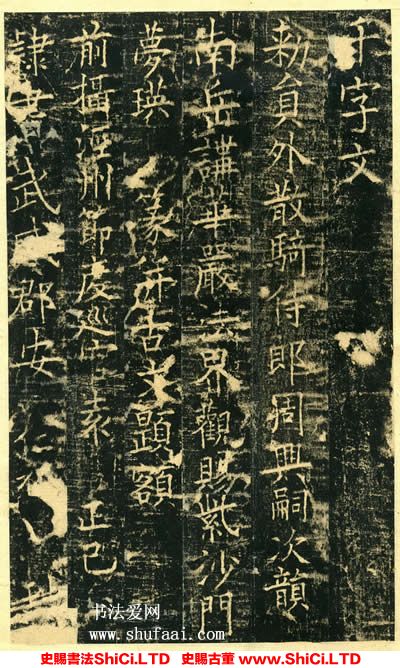 千字文
勑員外散騎侍郎周興嗣次韻
南岳講華嚴法界觀賜紫沙門
夢瑛 篆并古文題額
前攝涇州節度巡官袁 正己
隸書 武 郡安仁
书法爱网
www.shufaai.com
史賜書法ShiCi.LTD 史賜古董 www.ShiCi.LTD